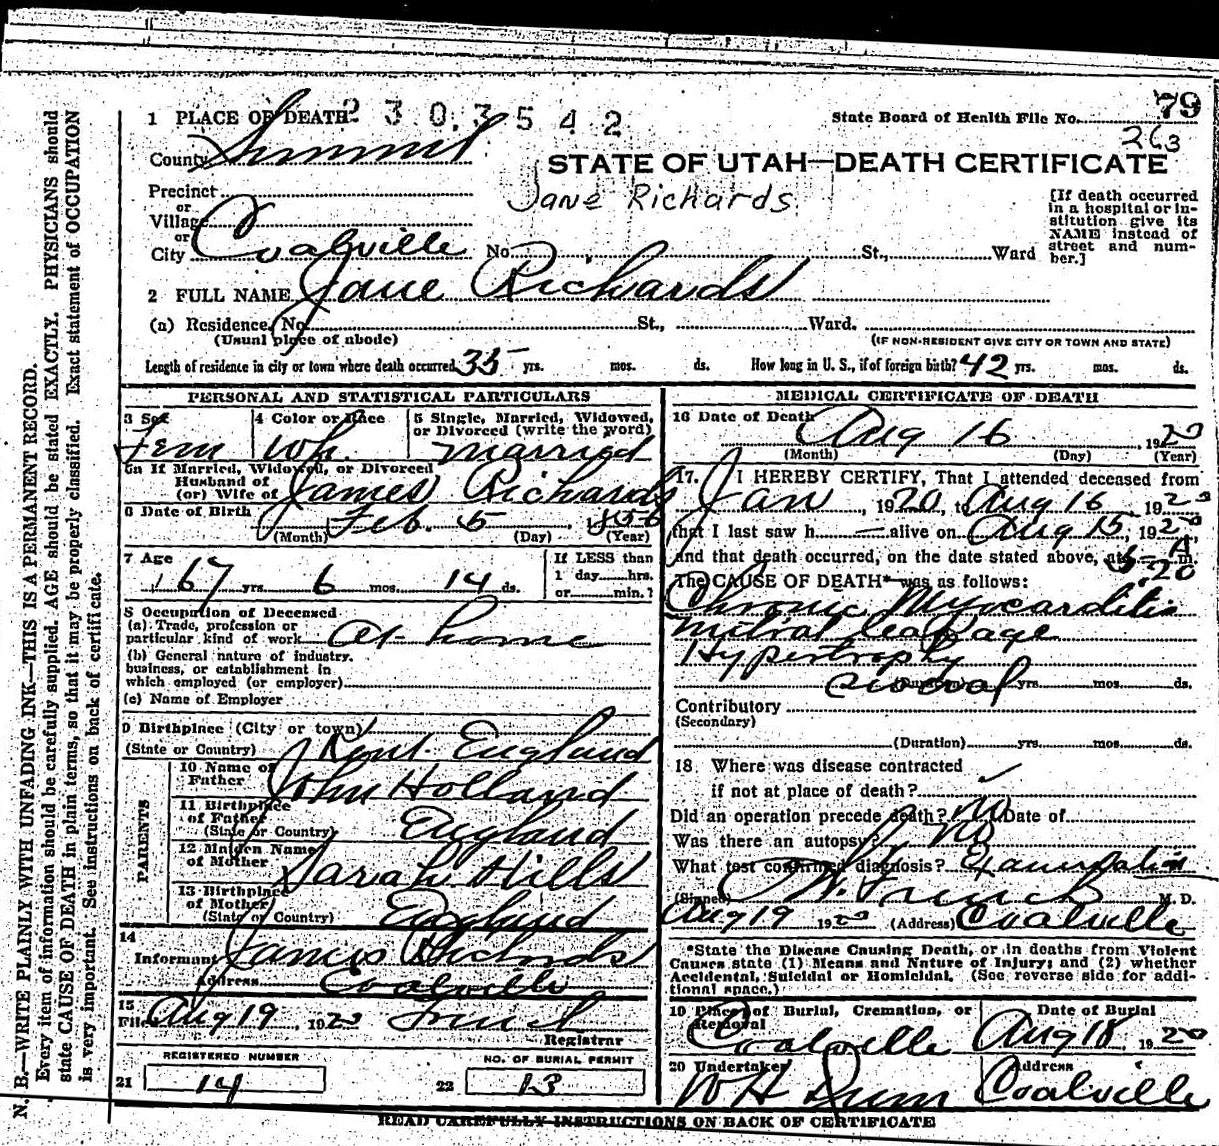 79
1 PLACE OF DEATH 2303542 State Board of Health File No.
263
County Summit STATE OF UTAH—DEATH CERTIFICATE
Jane Richards
Precinct
or
Village
or
City Coalville No. St., Ward
[If death occurred
in a hospital or in-
stitution give its
NAME instead of
street and num-
ber.]
2 FULL NAME Jane Richards
(a) Residence. No. St., Ward.
(Usual place of abode) (IF NON-RESIDENT GIVE CITY OR TOWN AND STATE)
Length of residence in city or town where death occurred 35 yrs. mos. ds. How long in U. S., if of foreign birth? 42 yrs. mos. ds.
PERSONAL AND STATISTICAL PARTICULARS
3 Sex 4 Color or Race 5 Single, Married, Widowed,
or Divorced (write the word)
Fem Wh. Married
6a If Married, Widowed, or Divorced
Husband of
(or) Wife of James Richards
6 Date of Birth Feb. 5
(Month) (Day) (Year)
7 Age If LESS than
1 day hrs.
67 yrs 6 mos. 14 ds. or min.?
8 Occupation of Deceased
(a) Trade, profession or
particular kind of work At home
(b) General nature of industry.
business, or establishment in
which employed (or employer)
(c) Name of Employer
9 Birthplace (City or town)
(State or Country) Kent. England
PARENTS
10 Name of
Father John Holland
11 Birthplace
of Father
(State or Country) England
12 Maiden Name
of Mother Sarah Hills
13 Birthplace
of Mother
(State or Country) England
14
Informant James Richards
Address Coalville
15
Filed Aug 19, 1920 French
Registrar
REGISTERED NUMBER NO. OF BURIAL PERMIT
21 14 22 13
MEDICAL CERTIFICATE OF DEATH
16 Date of Death Aug 16, 1920
(Month) (Day) (Year)
17. I HEREBY CERTIFY, That I attended deceased from
Jan, 1920, to Aug 16, 1920
that I last saw h alive on Aug 15, 1920,
and that death occurred, on the date stated above, at m.
The CAUSE OF DEATH* was as follows:
Chronic Myocarditis
Mitral leakage
Hypertrophy
(Duration) yrs. mos. ds.
Contributory
(Secondary)
(Duration) yrs. mos. ds.
18. Where was disease contracted
if not at place of death?
Did an operation precede death? No Date of
Was there an autopsy? No
What test confirmed diagnosis? Examination
(Signed) French M. D.
Aug 19 1920 (Address) Coalville
*State the Disease Causing Death, or in deaths from Violent
Causes state (1) Means and Nature of Injury; and (2) whether
Accidental, Suicidal or Homicidal. (See reverse side for addi-
tional space.)
19 Place of Burial, Cremation, or Date of Burial
Removal
Coalville Aug 18, 1920
20 Undertaker Address
W H Coalville
READ CAREFULLY INSTRUCTIONS ON BACK OF CERTIFICATE
N. B.—WRITE PLAINLY WITH UNFADING INK—THIS IS A PERMANENT RECORD.
Every item of information should be carefully supplied. AGE should be stated EXACTLY. PHYSICIANS should
state CAUSE OF DEATH in plain terms, so that it may be properly classified. Exact statement of OCCUPATION
is very important. See instructions on back of certificate.